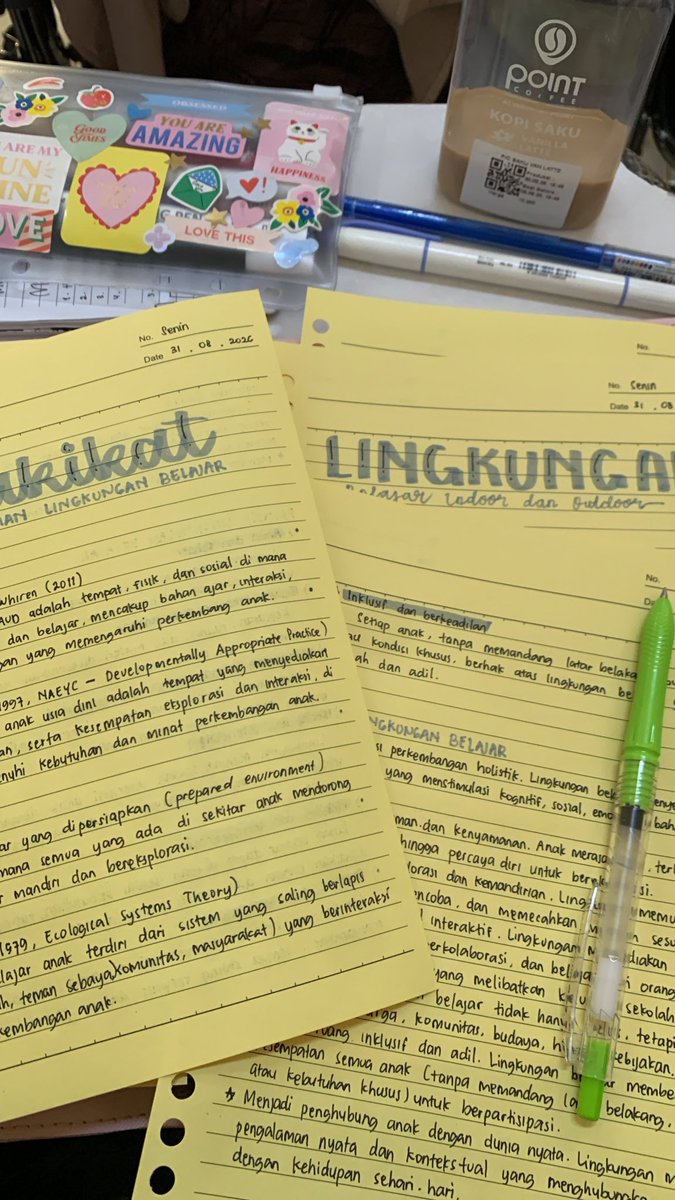 OBSESSED
YOU ARE
AMAZING
GOOD
TIMES
HAPPINESS
LOVE
LOVE THIS
POINT
COFFEE
KOPI SAKU
VANILLA
LATTE
No. Senin
Date 31 . 08 . 2026
akikat
LINGKUNGAN BELAJAR
whiren (2011)
AUD adalah tempat, fisik, dan sosial di mana
dan belajar, mencakup bahan ajar, interaksi,
yang memengaruhi perkembang anak.
1997, NAEYC - Developmentally Appropriate Practice)
anak usia dini adalah tempat yang menyediakan
an, serta kesempatan eksplorasi dan interaksi, di
nuhi kebutuhan dan minat perkembangan anak.
ar yang dipersiapkan (prepared environment)
mana semua yang ada di sekitar anak mendorong
mandiri dan bereksplorasi.
1979, Ecological Systems Theory)
lajar anak terdiri dari sistem yang saling berlapis
h, teman sebaya, komunitas, masyarakat) yang berinteraksi
kembangan anak.
No.
No. Senin
Date 31 . 08
LINGKUNGA
Belajar Indoor dan Outdoor
No.
Inklusif dan berkeadilan
Setiap anak, tanpa memandang latar belaka
au kondisi khusus, berhak atas lingkungan be
ah dan adil.
NGKUNGAN BELAJAR
si perkembangan holistik. Lingkungan
yang menstimulasi kognitif, sosial,
man dan kenyamanan. Anak
hingga percaya diri untuk
lorasi dan kemandirian.
encoba, dan memecahkan
interaktif. Lingkungan
erkolaborasi, dan
yang melibatkan
belajar tidak
komunitas, budaya,
inklusif dan adil. Lingkungan
sempatan semua anak (tanpa memandang belakang,
atau kebutuhan khusus) untuk berpartisipasi.
Menjadi penghubung anak dengan dunia nyata. Lingkungan
pengalaman nyata dan kontekstual yang menghubungka
dengan kehidupan sehari-hari.